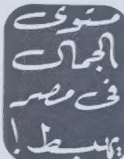 مستوى
الجمال
فى مصر
يهبط!